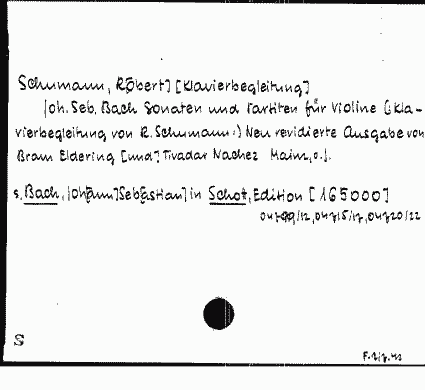 Schumann, R[obert] [Klavierbegleitung]
Joh. Seb. Bach Sonaten und Partiten für Violine (:Kla-
vierbegleitung von R. Schumann:) Neu revidierte Ausgabe von
Bram Eldering [und] Tivadar Nachez Mainz, o.J.
s. Bach, Joh[ann] Seb[astian] in Schot, Edition [165000]
S